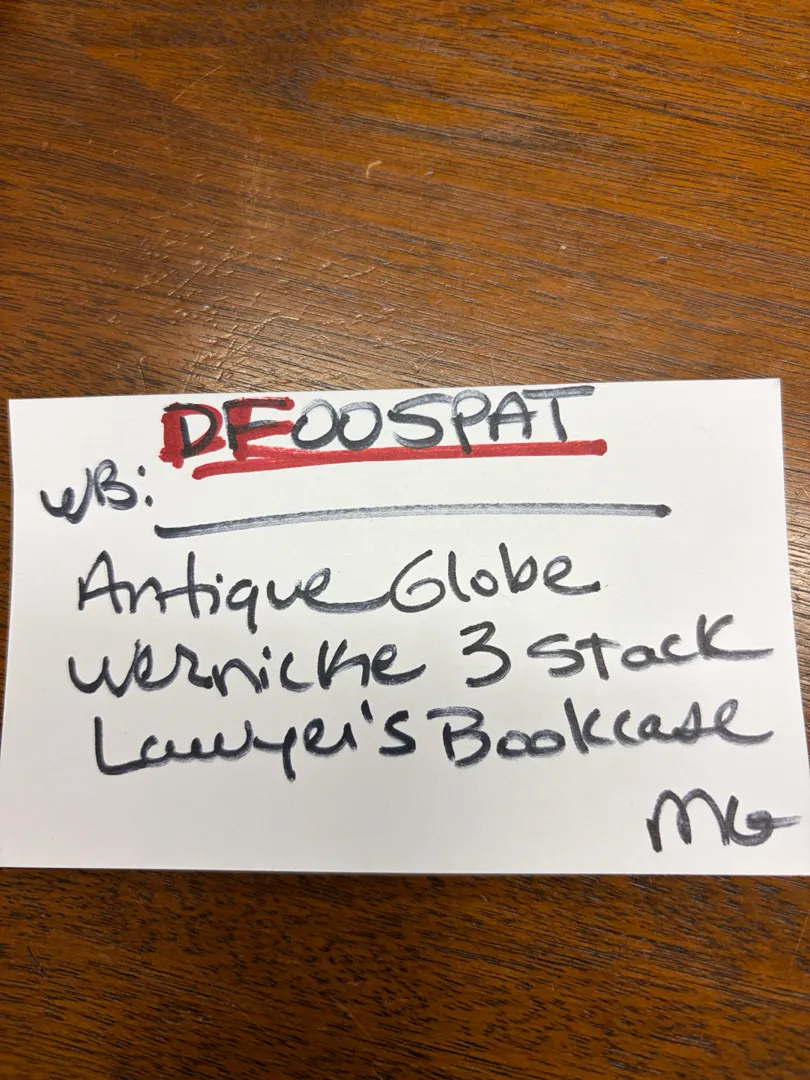 DFOOSPAT
WB:
Antique Globe
Wernicke 3 Stack
Lawyer's Bookcase
MG